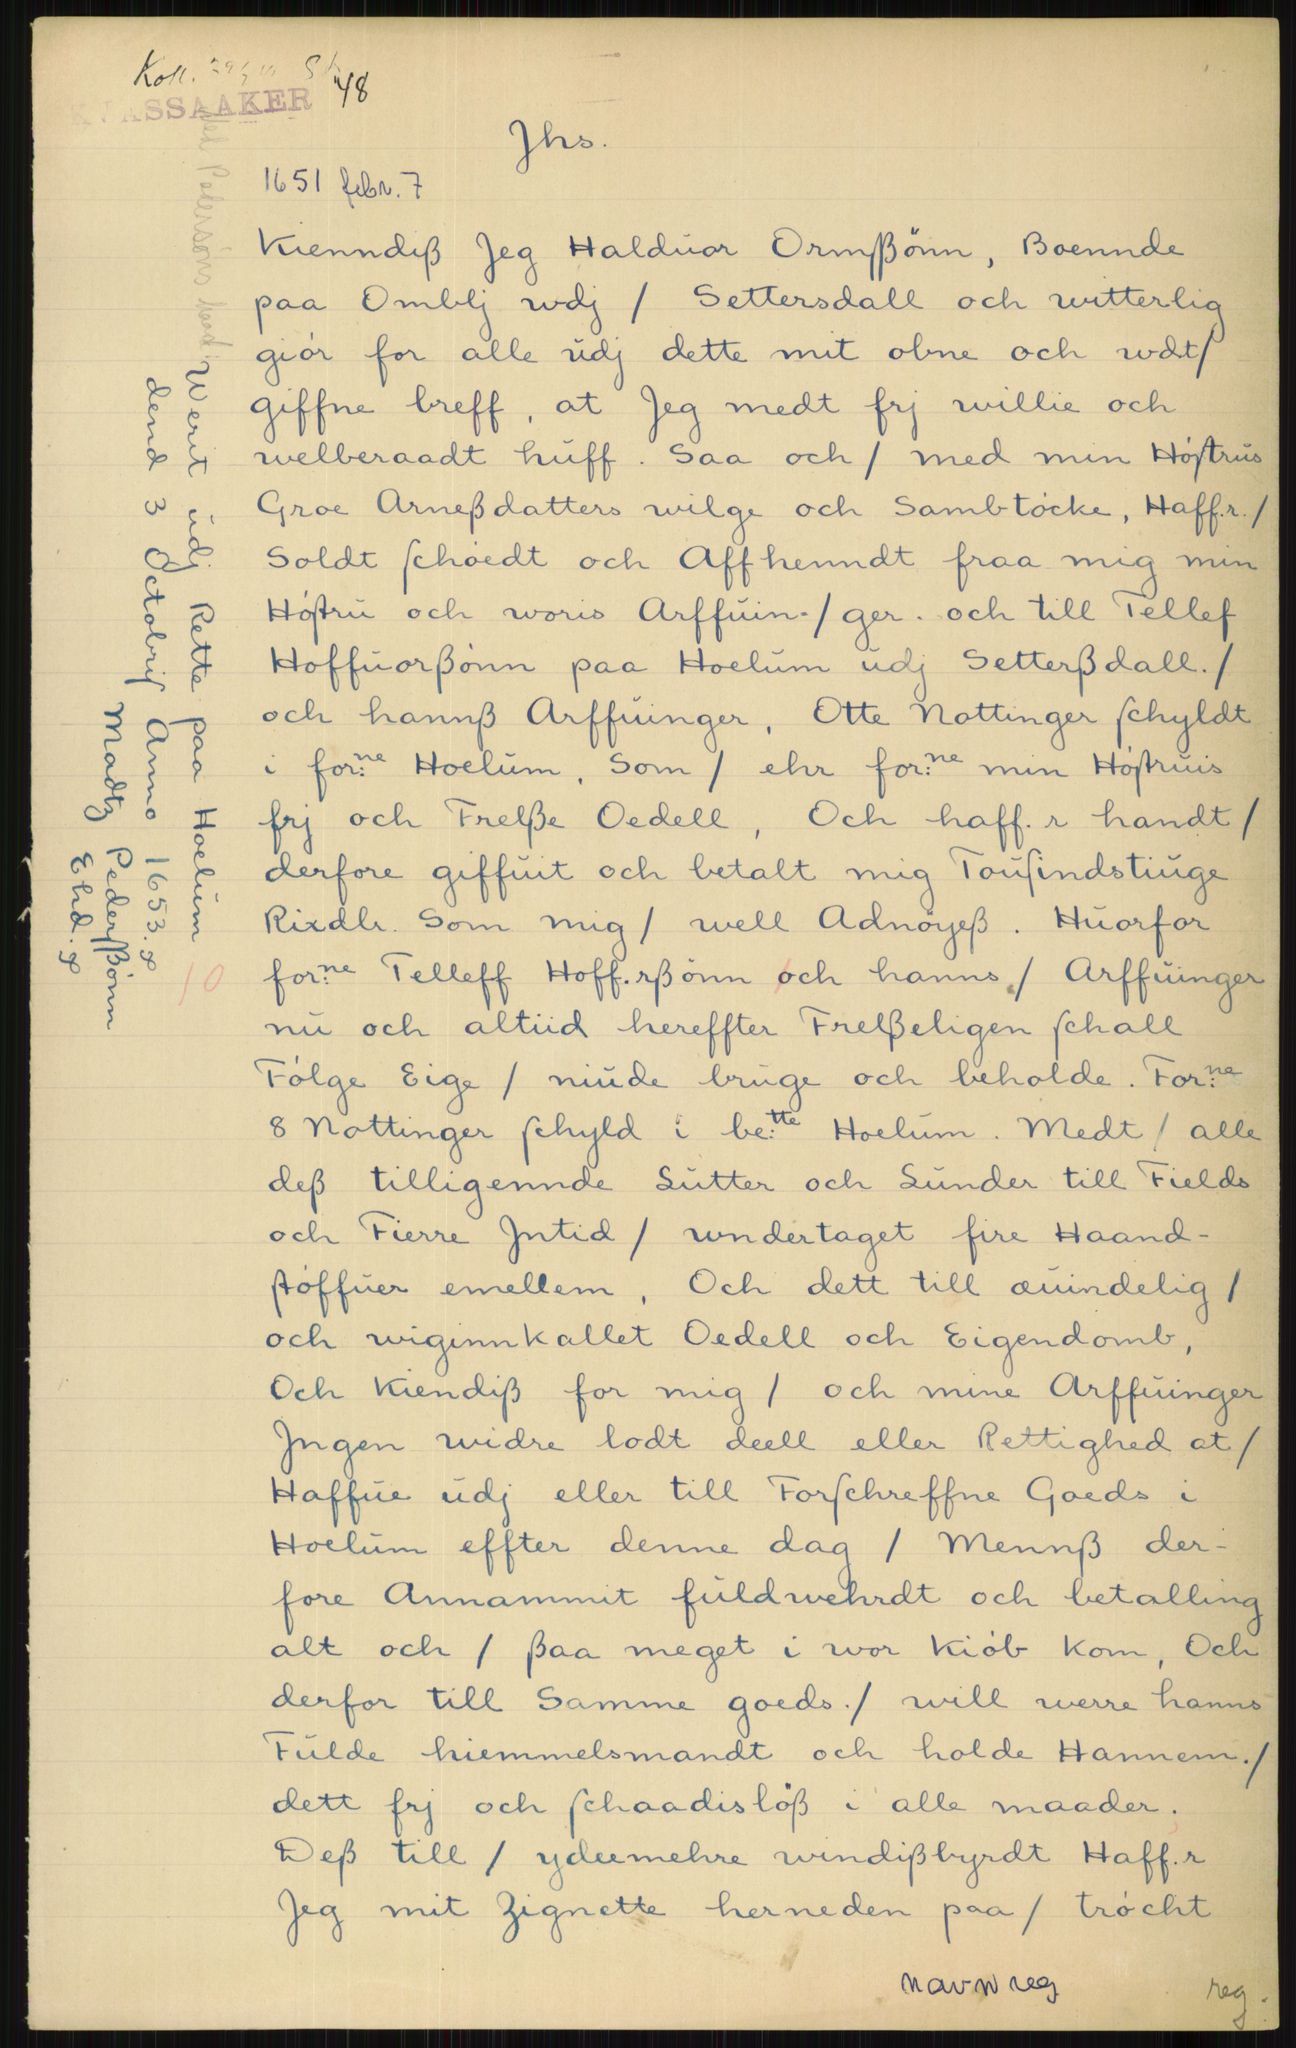 Koll. 48
KVASSAAKER
Jhs.
1651 febr. 7
Kienndiß Jeg Halduor Ormßönn, Boennde
paa Omblj wdj / Settersdall och witterlig
giór for alle üdj dette mit obne och wdt/
giffne breff, at Jeg medt frj willie och
welberaadt hüff. Saa och / med min Höstrüs
Groe Arneßdatters wilge och Sambtöcke, Haff.r./
Soldt schöedt och Affhenndt fraa mig min
Höstrü och woris Arffüin-/ger. och till Tellef
Hoffüorßönn paa Hoelüm üdj Setterßdall./
och hannß Arffüinger, Otte Nottinger schyldt
i for:ne Hoelüm, Som / ehr for:ne min Höstruis
frj och Frelße Oedell, Och haff.r handt /
derfore giffüit och betalt mig Toüsindstiüge
Rixdlr. Som mig / well Adnöyeß. Hüorfor
for:ne Telleff Hoff.rßönn och hanns / Arffüinger
nü och altiid hereffter Frelßeligen schall
Fölge Eige / niüde brüge och beholde. For:ne
8 Nottinger schyld i be:tte Hoelüm. Medt / alle
deß tilligennde Lütter och Lünder till Fields
och Fierre Jntid / wndertaget fire Haand-
stöffüer emellem, Och dett till æüindelig /
och wiginnkallet Oedell och Eigendomb,
Och Kiendiß for mig / och mine Arffüinger
Jngen widre lodt deell eller Rettighed at /
Haffüe üdj eller till Forschreffne Goeds i
Hoelüm effter denne dag / Mennß der-
fore Annammit füldwehrdt och betalling
alt och / ßaa meget i wor Kiöb Kom, Och
derfor till Samme goeds./ will werre hanns
Fülde hiemmelsmandt och holde Hannem./
dett frj och schaadislöß i alle maader.
Deß till / ydeemehre windißbyrdt Haff.r
Jeg mit Zignette herneden paa / tröcht
navn reg
reg.
Werit üdj Rette paa Hoelüm
dend 3 Octobriß Anno 1653.
Madtz Pederßönn
Ehd.
10